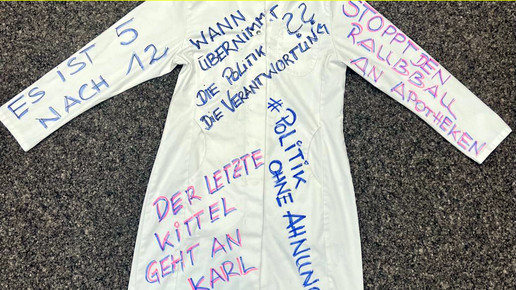 ES IST 5
NACH 12
WANN
ÜBERNIMMT
DIE POLITIK
DIE VERANTWORTUNG
??
STOPPT DEN
RAUBBAU
AN APOTHEKEN
#POLITIK
OHNE AHNUNG
DER LETZTE
KITTEL
GEHT AN
KARL